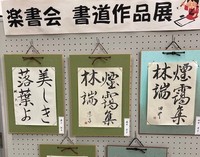 楽書会 書道作品展
美しき
落葉よ
煙靄集
林端
煙靄集
林端